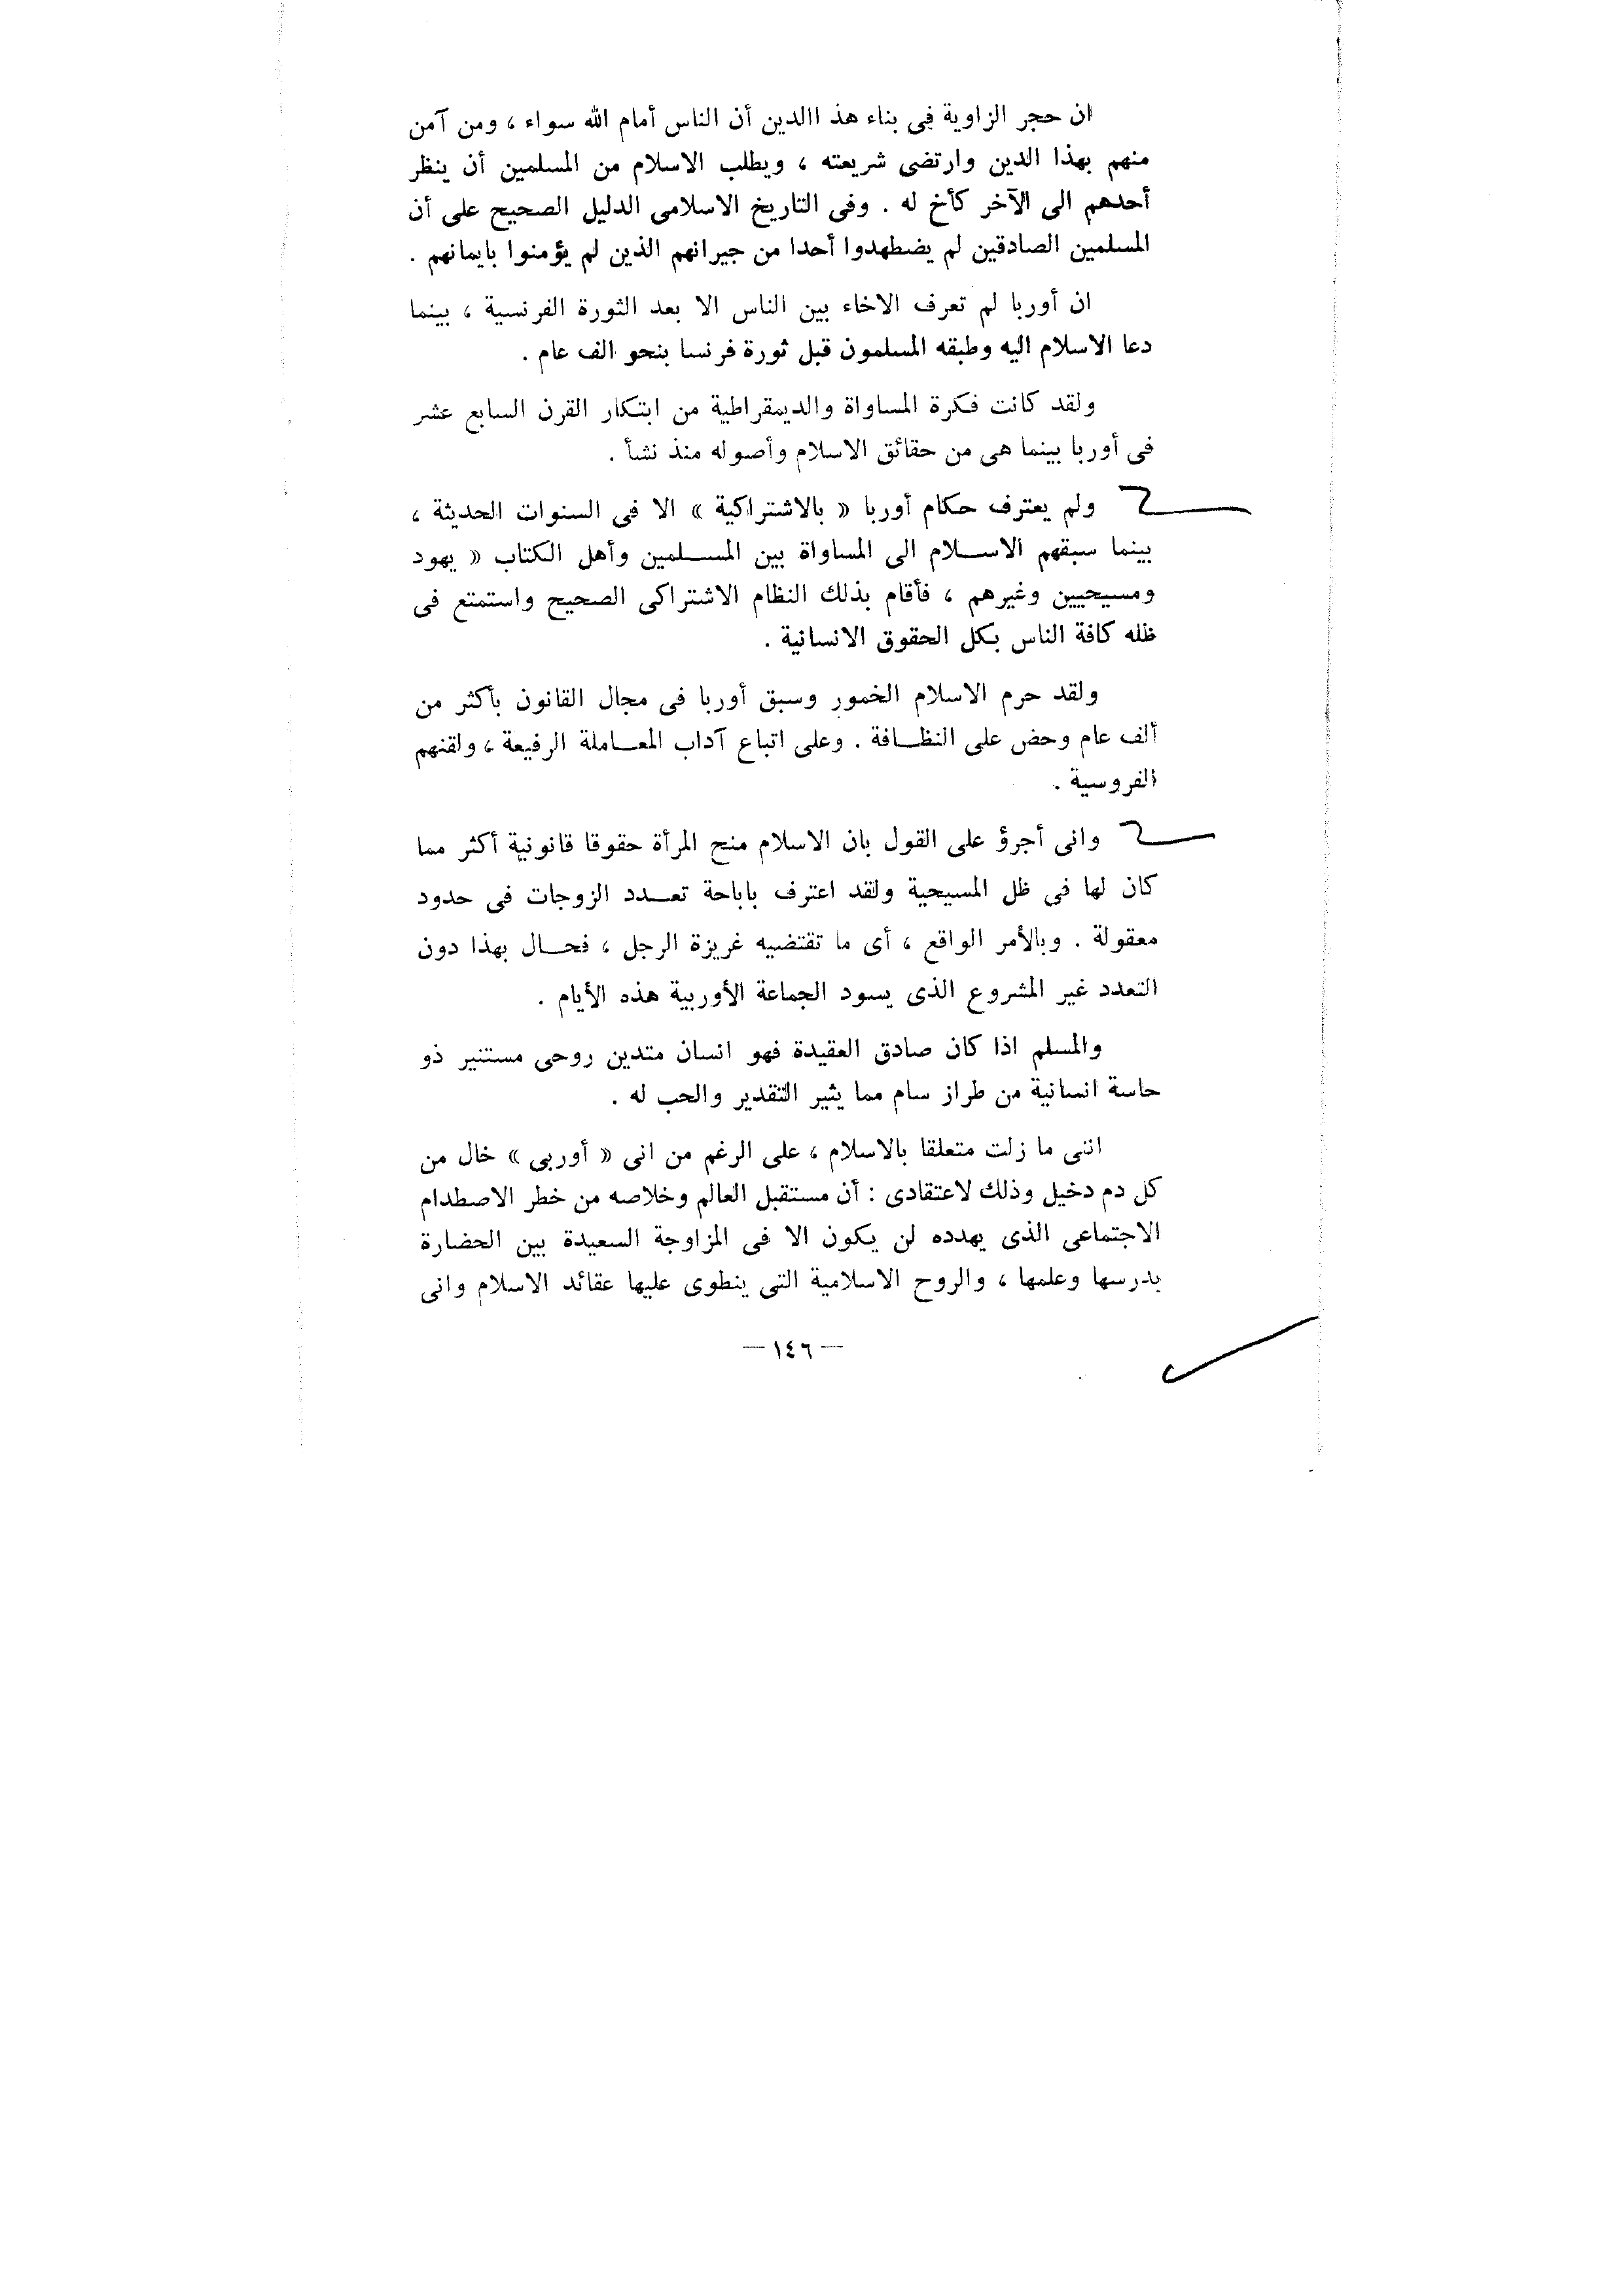 ان حجر الزاوية فى بناء هذ االدين أن الناس أمام الله سواء ، ومن آمن
منهم بهذا الدين وارتضى شريعته ، ويطلب الاسلام من المسلمين أن ينظر
أحدهم الى الآخر كأخ له . وفى التاريخ الاسلامى الدليل الصحيح على أن
المسلمين الصادقين لم يضطهدوا أحدا من جيرانهم الذين لم يؤمنوا بايمانهم .
ان أوربا لم تعرف الاخاء بين الناس الا بعد الثورة الفرنسية ، بينما
دعا الاسلام اليه وطبقه المسلمون قبل ثورة فرنسا بنحو الف عام .
ولقد كانت فكرة المساواة والديمقراطية من ابتكار القرن السابع عشر
فى أوربا بينما هى من حقائق الاسلام وأصوله منذ نشأ .
ولم يعترف حكام أوربا « بالاشتراكية » الا فى السنوات الحديثة ،
بينما سبقهم الاســلام الى المساواة بين المســلمين وأهل الكتاب « يهود
ومسيحيين وغيرهم ، فأقام بذلك النظام الاشتراكى الصحيح واستمتع فى
ظله كافة الناس بكل الحقوق الانسانية .
ولقد حرم الاسلام الخمور وسبق أوربا فى مجال القانون بأكثر من
ألف عام وحض على النظــافة . وعلى اتباع آداب المعــاملة الرفيعة ، ولقنهم
الفروسية .
وانى أجرؤ على القول بان الاسلام منح المرأة حقوقا قانونية أكثر مما
كان لها فى ظل المسيحية ولقد اعترف باباحة تعــدد الزوجات فى حدود
معقولة . وبالأمر الواقع ، أى ما تقتضيه غريزة الرجل ، فحــال بهذا دون
التعدد غير المشروع الذى يسود الجماعة الأوربية هذه الأيام .
والمسلم اذا كان صادق العقيدة فهو انسان متدين روحى مستنير ذو
حاسة انسانية من طراز سام مما يثير التقدير والحب له .
اننى ما زلت متعلقا بالاسلام ، على الرغم من انى « أوربى » خال من
كل دم دخيل وذلك لاعتقادى : أن مستقبل العالم وخلاصه من خطر الاصطدام
الاجتماعى الذى يهدده لن يكون الا فى المزاوجة السعيدة بين الحضارة
بدرسها وعلمها ، والروح الاسلامية التى ينطوى عليها عقائد الاسلام وانى
— ١٤٦ —